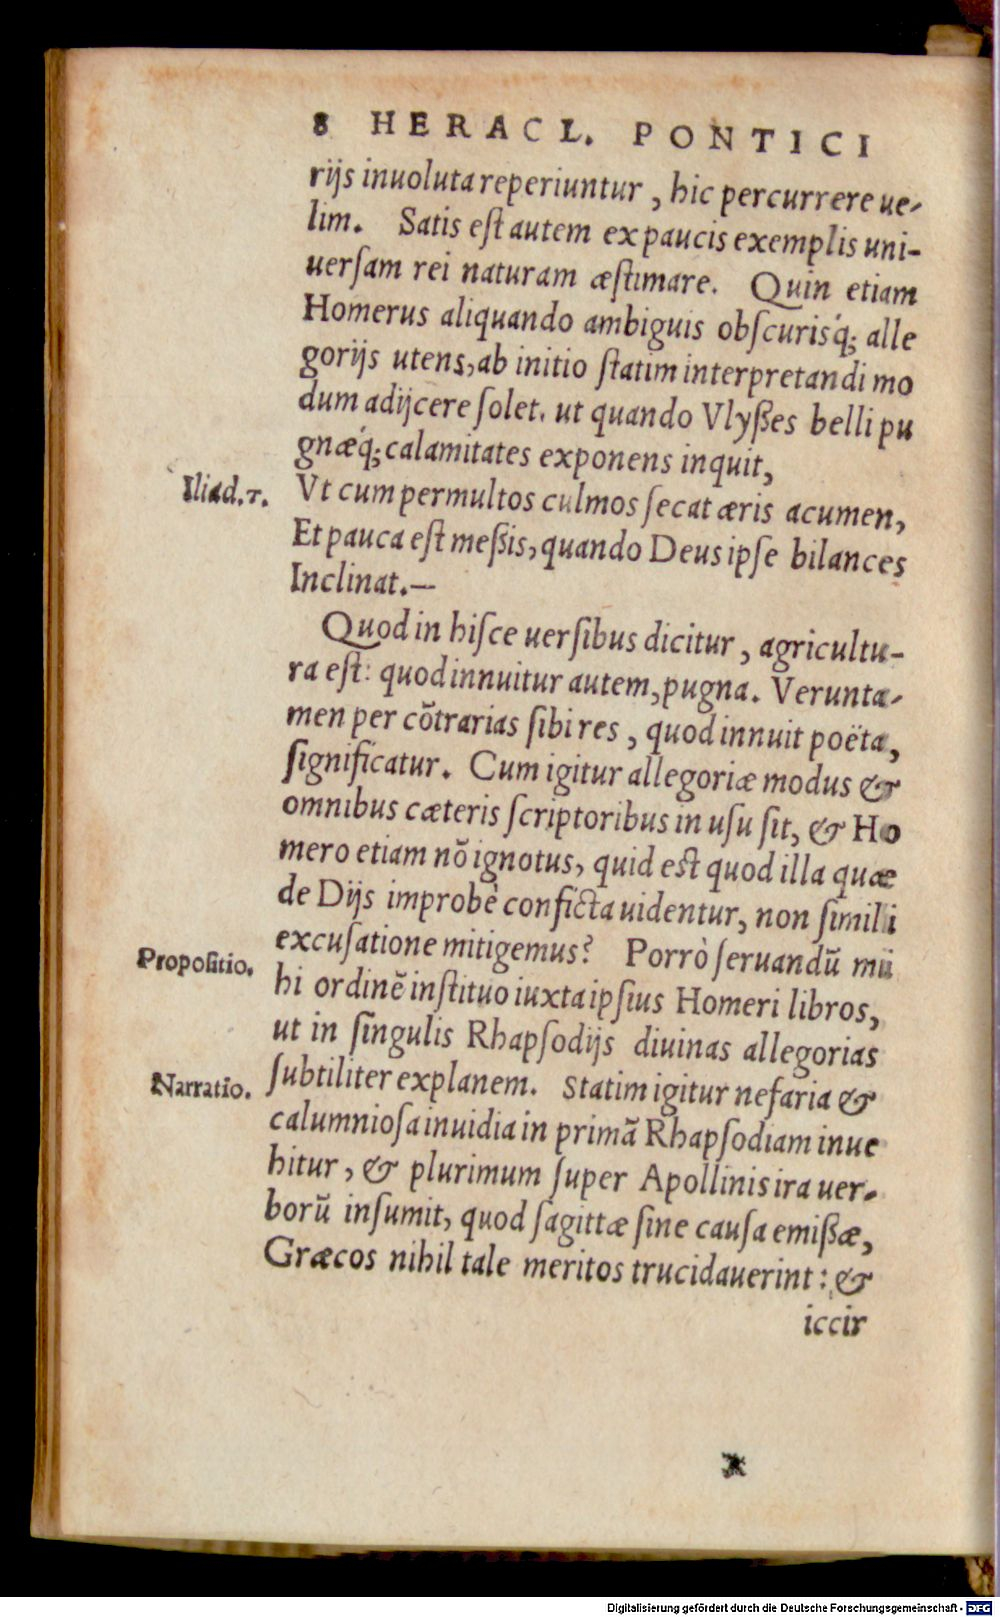 8 HERACL. PONTICI
rijs inuoluta reperiuntur, hic percurrere ue-
lim. Satis eſt autem ex paucis exemplis uni-
uerſam rei naturam æſtimare. Quin etiam
Homerus aliquando ambiguis obſcurisq́; alle
gorijs utens, ab initio ſtatim interpretandi mo
dum adijcere ſolet. ut quando Vlyßes belli pu
gnæq́; calamitates exponens inquit,
Iliad.τ. Vt cum permultos culmos ſecat æris acumen,
Et pauca eſt meßis, quando Deus ipſe bilances
Inclinat.—
Quod in hiſce uerſibus dicitur, agricultu-
ra eſt: quod innuitur autem, pugna. Verunta-
men per cõtrarias ſibi res, quod innuit poëta,
ſignificatur. Cum igitur allegoriæ modus &
omnibus cæteris ſcriptoribus in uſu ſit, & Ho
mero etiam nõ ignotus, quid est quod illa quæ
de Dijs improbè conficta uidentur, non ſimili
excuſatione mitigemus? Porrò ſeruandũ mi
Propoſitio. hi ordinẽ inſtituo iuxta ipſius Homeri libros,
ut in ſingulis Rhapſodijs diuinas allegorias
Narratio. ſubtiliter explanem. Statim igitur nefaria &
calumnioſa inuidia in primã Rhapſodiam inue
hitur, & plurimum ſuper Apollinis ira uer-
borũ inſumit, quod ſagittæ ſine cauſa emißæ,
Græcos nihil tale meritos trucidauerint: &
iccir
Digitalisierung gefördert durch die Deutsche Forschungsgemeinschaft - DFG